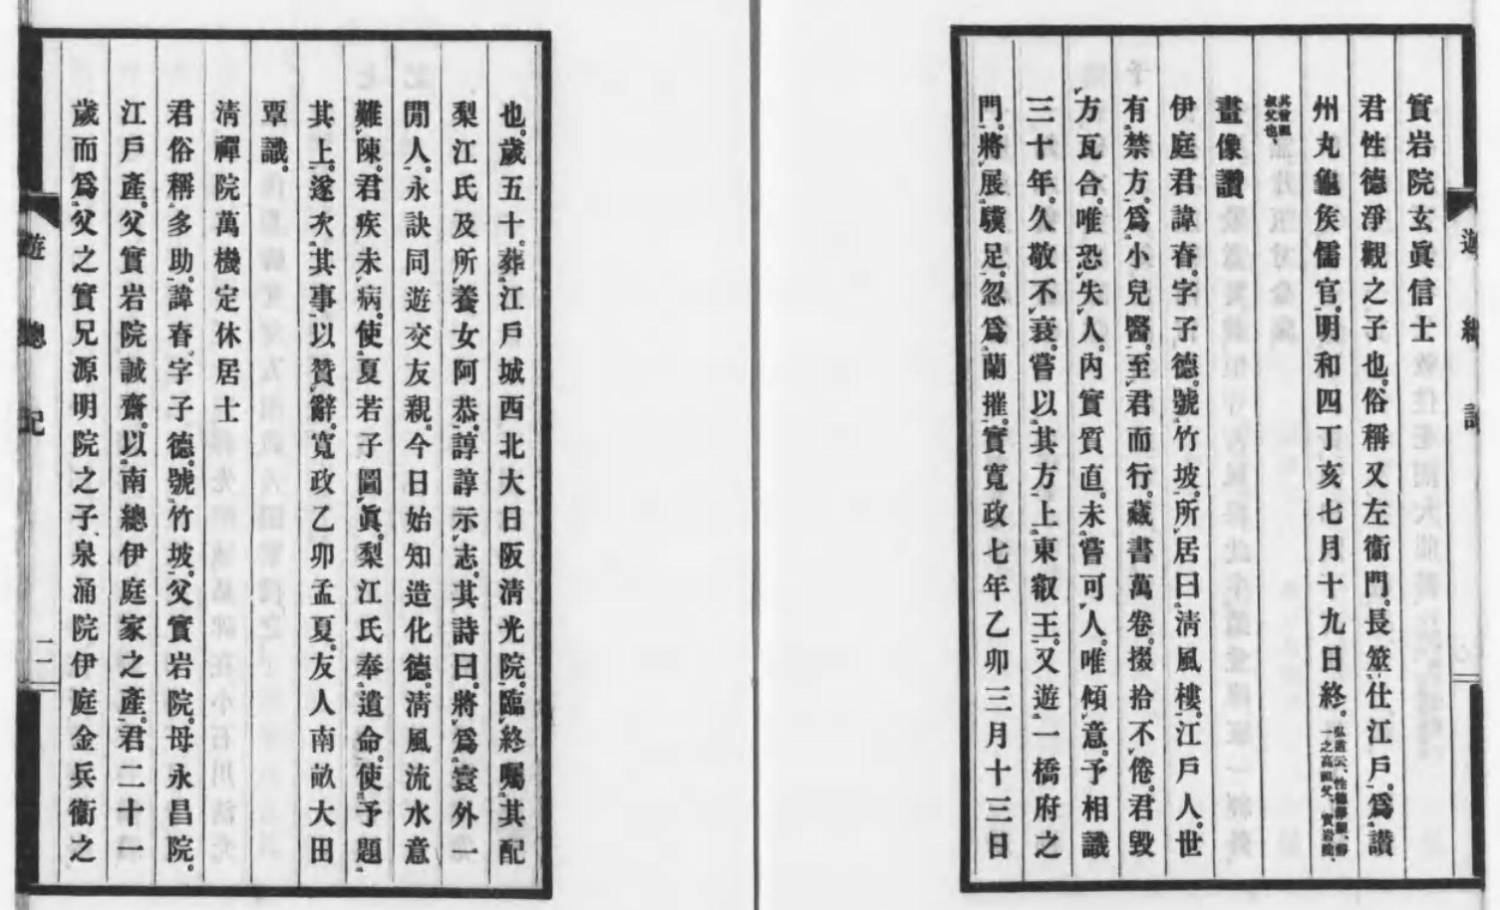 實岩院玄眞信士
君性德淨觀之子也。俗稱又左衞門。長筮仕江戶。爲讃
州丸龜矦儒官。明和四丁亥七月十九日終。弘道云、性德淨觀、靜
一之高祖父、實岩院、
其曾祖
叔父也、
畫像讚
伊庭君諱春。字子德。號竹坡。所居曰淸風樓。江戶人。世
有禁方。爲小兒醫。至君而行。藏書萬卷。掇拾不倦。君毀
方瓦合。唯恐失人。內實質直。未嘗可人。唯傾意。予相識
三十年。久敬不衰。嘗以其方上東叡王。又遊一橋府之
門。將展驥足。忽爲蘭摧。實寬政七年乙卯三月十三日
遊總記
也。歲五十。葬江戶城西北大日阪淸光院。臨終囑其配
梨江氏及所養女阿恭。諄諄示志。其詩曰。將爲寰外一
閒人。永訣同遊交友親。今日始知造化德。淸風流水意
難陳。君疾未病。使夏若子圖眞。梨江氏奉遺命。使予題
其上。遂次其事。以贊辭。寬政乙卯孟夏。友人南畝大田
覃識。
淸禪院萬機定休居士
君俗稱多助。諱春字子德。號竹坡。父實岩院。母永昌院。
江戶產。父實岩院誠齋。以南總伊庭家之產。君二十一
歲而爲父之實兄源明院之子、泉涌院伊庭金兵衞之
遊總記
二一